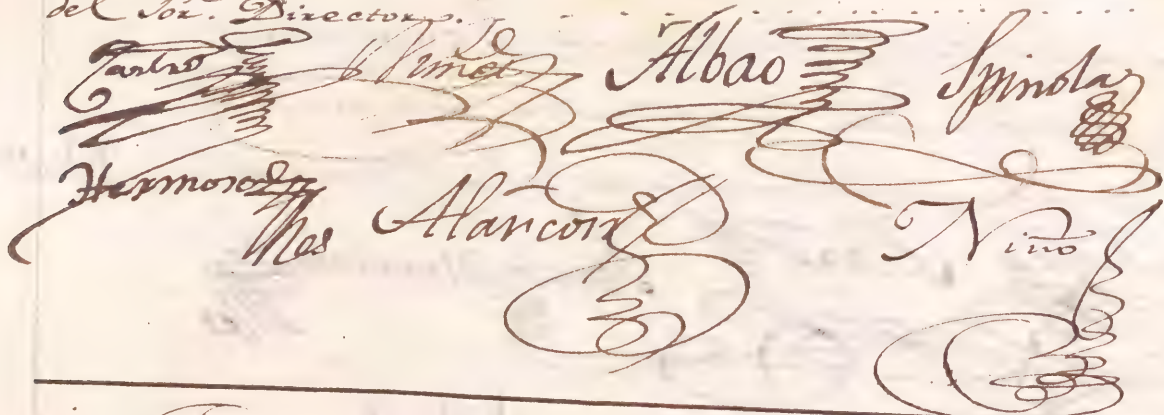 del Sor. Director.
Castro Albao Spinola
Hermoso Alarcon Nino